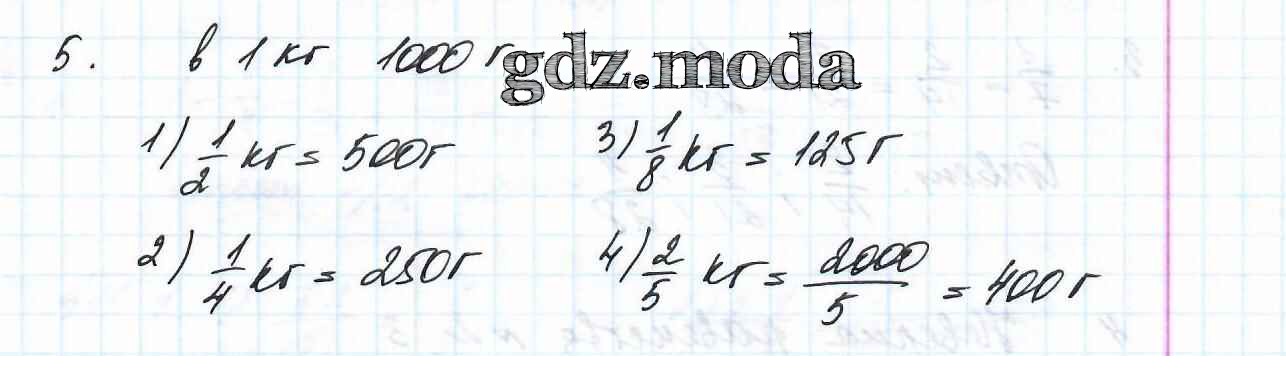 5. в 1 кг 1000 г
gdz.moda
1) 1/2 кг = 500г
3) 1/8 кг = 125г
2) 1/4 кг = 250г
4) 2/5 кг = 2000/5 = 400г